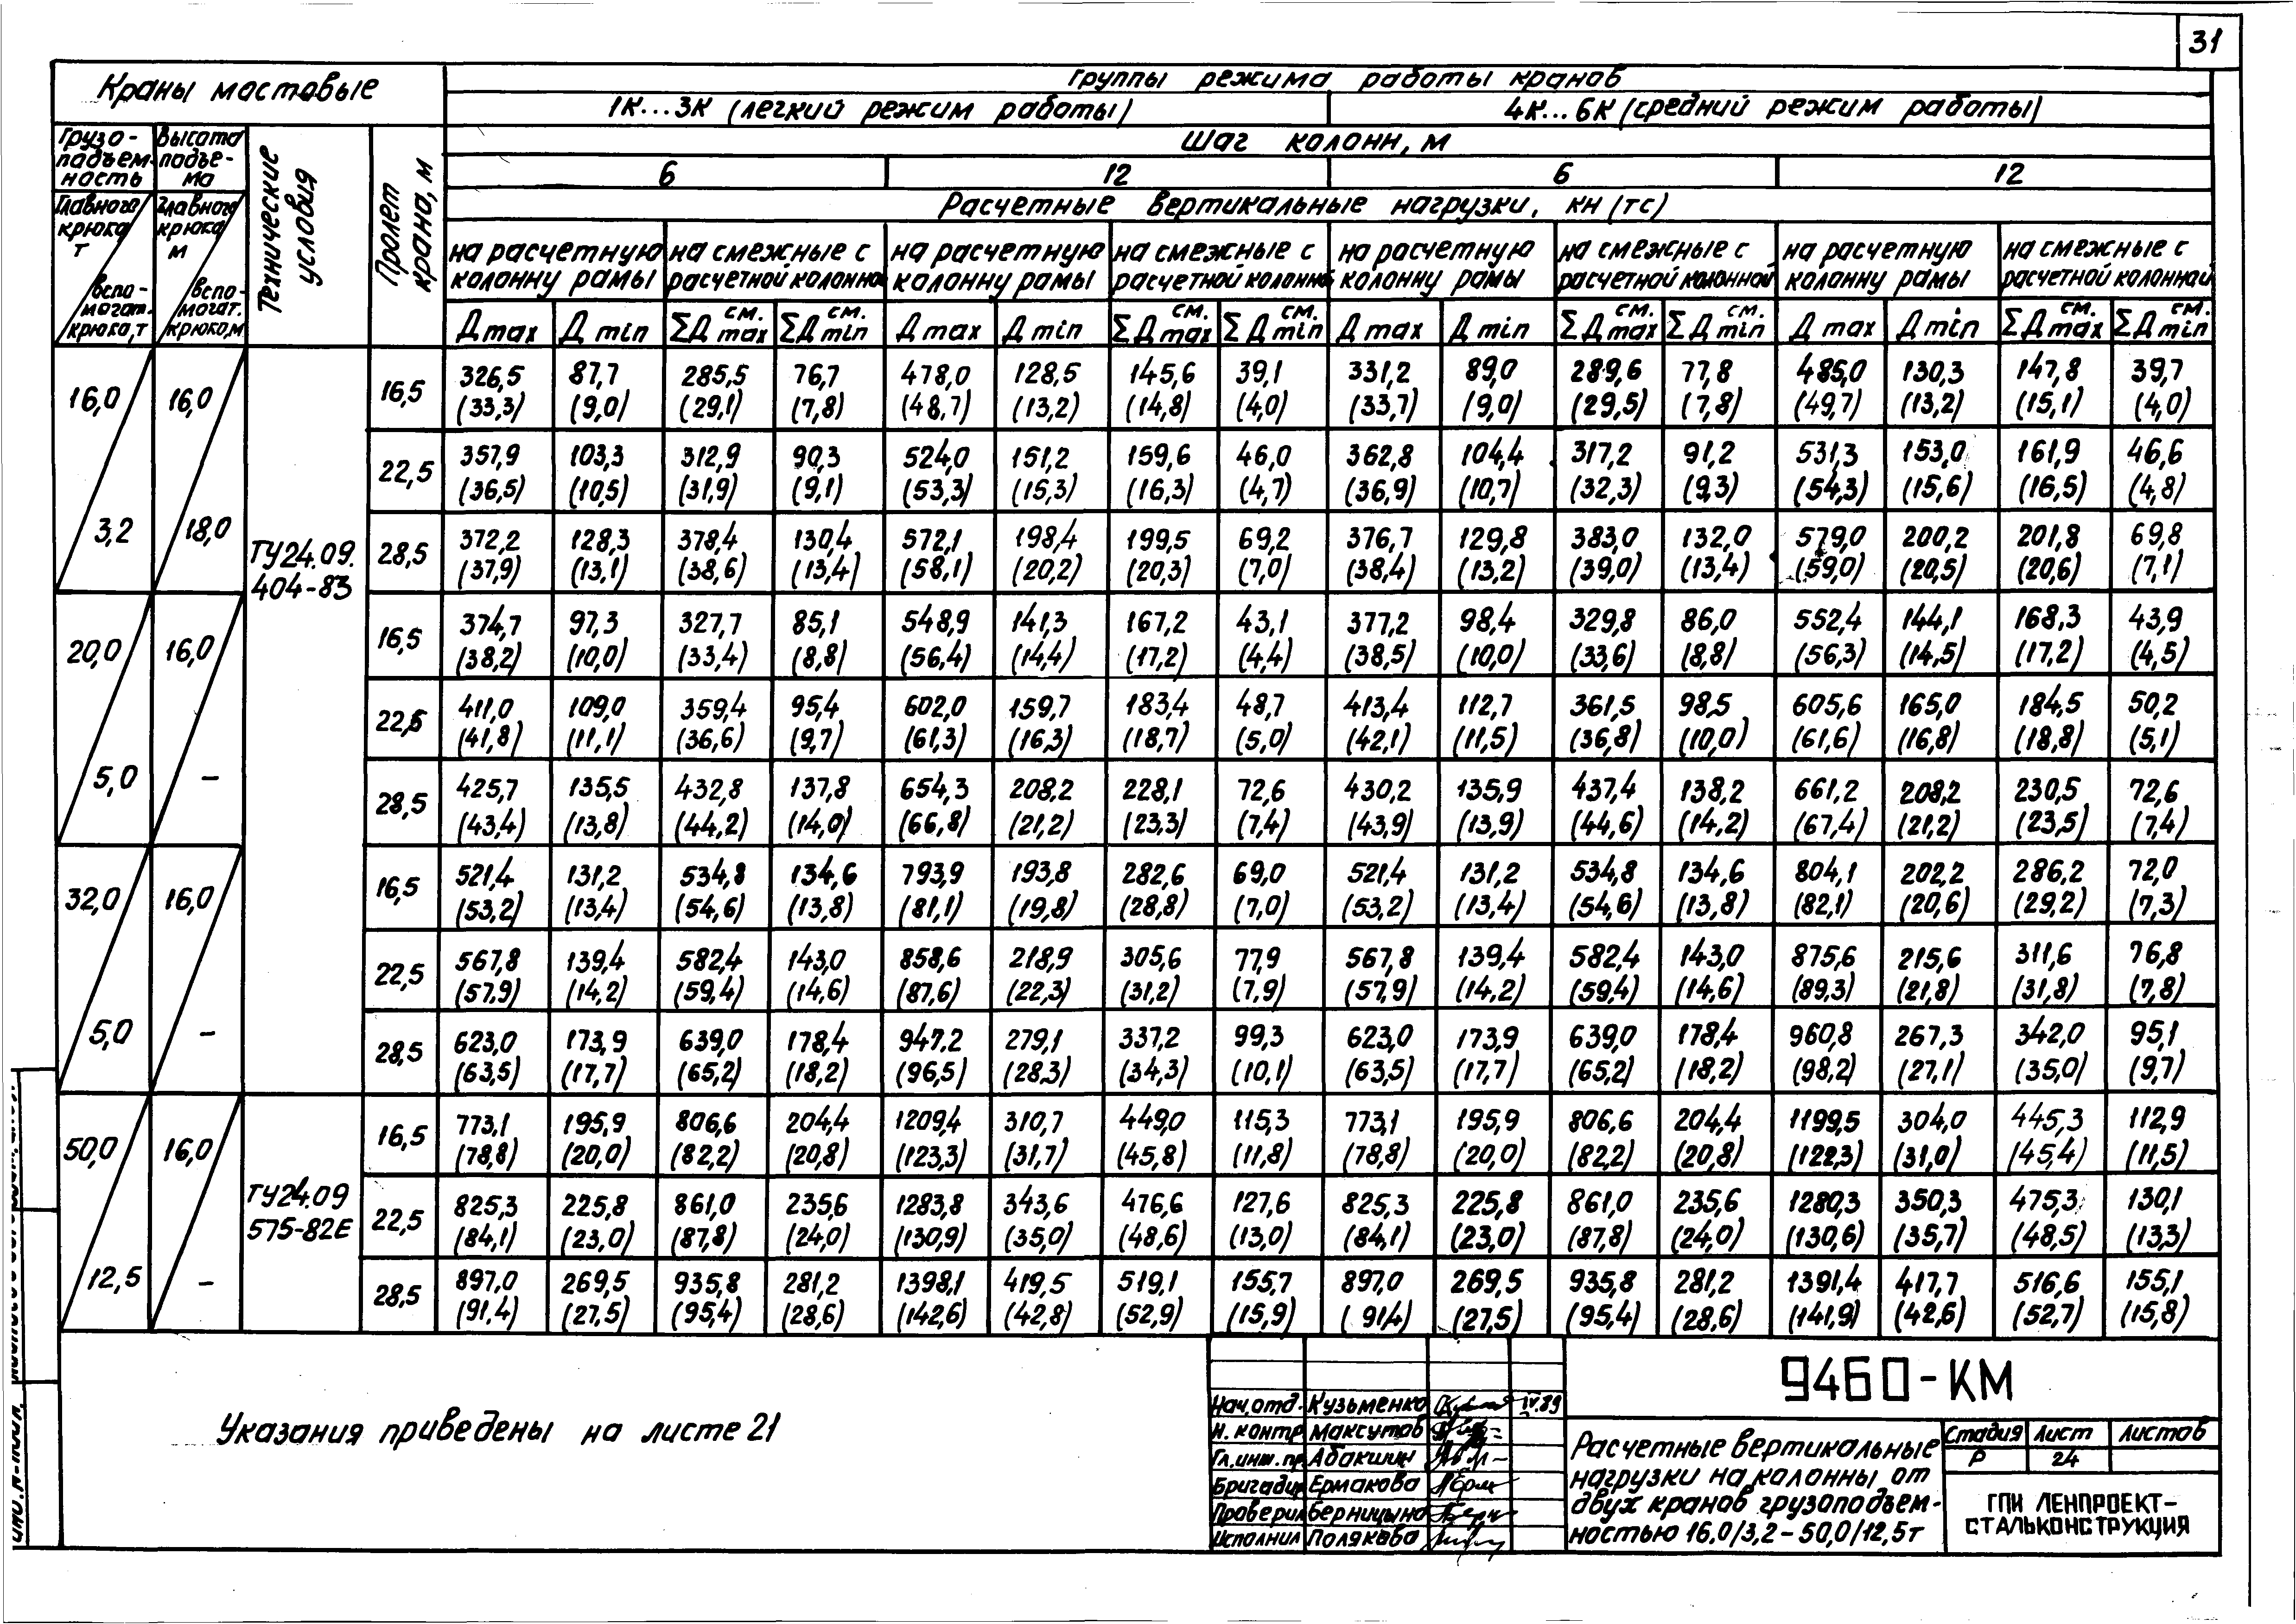 31
Краны мостовые
Группы режима работы кранов
1К...3К (легкий режим работы)
4К...6К (средний режим работы)
Грузо-
подъем-
ность
Высота
подъе-
ма
Технические
условия
Пролет
крана, м
Шаг колонн, м
6 12 6 12
Главного
крюка
т
вспо-
могат.
крюка, т
Главного
крюка
м
вспо-
могат.
крюка, м
Расчетные вертикальные нагрузки, кН (тс)
на расчетную на смежные с на расчетную на смежные с на расчетную на смежные с на расчетную на смежные с
колонну рамы расчетной колонной колонну рамы расчетной колонной колонну рамы расчетной колонной колонну рамы расчетной колонной
Д max Д min ΣД см. max ΣД см. min Д max Д min ΣД см. max ΣД см. min Д max Д min ΣД см. max ΣД см. min Д max Д min ΣД см. max ΣД см. min
16,0 3,2
16,0 18,0
ТУ24.09.
404-83
16,5 326,5 87,7 285,5 76,7 478,0 128,5 145,6 39,1 331,2 89,0 289,6 77,8 485,0 130,3 147,8 39,7
(33,3) (9,0) (29,1) (7,8) (48,7) (13,2) (14,8) (4,0) (33,7) (9,0) (29,5) (7,8) (49,7) (13,2) (15,1) (4,0)
22,5 357,9 103,3 312,9 90,3 524,0 151,2 159,6 46,0 362,8 104,4 317,2 91,2 531,3 153,0 161,9 46,6
(36,5) (10,5) (31,9) (9,1) (53,3) (15,3) (16,3) (4,7) (36,9) (10,7) (32,3) (9,3) (54,3) (15,6) (16,5) (4,8)
28,5 372,2 128,3 378,4 130,4 572,1 198,4 199,5 69,2 376,7 129,8 383,0 132,0 579,0 200,2 201,8 69,8
(37,9) (13,1) (38,6) (13,4) (58,1) (20,2) (20,3) (7,0) (38,4) (13,2) (39,0) (13,4) (59,0) (20,5) (20,6) (7,1)
20,0 5,0
16,0 –
16,5 374,7 97,3 327,7 85,1 548,9 141,3 167,2 43,1 377,2 98,4 329,8 86,0 552,4 144,1 168,3 43,9
(38,2) (10,0) (33,4) (8,8) (56,4) (14,4) (17,2) (4,4) (38,5) (10,0) (33,6) (8,8) (56,3) (14,5) (17,2) (4,5)
22,5 411,0 109,0 359,4 95,4 602,0 159,7 183,4 48,7 413,4 112,7 361,5 98,5 605,6 165,0 184,5 50,2
(41,8) (11,1) (36,6) (9,7) (61,3) (16,3) (18,7) (5,0) (42,1) (11,5) (36,8) (10,0) (61,6) (16,8) (18,8) (5,1)
28,5 425,7 135,5 432,8 137,8 654,3 208,2 228,1 72,6 430,2 135,9 437,4 138,2 661,2 208,2 230,5 72,6
(43,4) (13,8) (44,2) (14,0) (66,8) (21,2) (23,3) (7,4) (43,9) (13,9) (44,6) (14,2) (67,4) (21,2) (23,5) (7,4)
32,0 5,0
16,0 –
16,5 521,4 131,2 534,8 134,6 793,9 193,8 282,6 69,0 521,4 131,2 534,8 134,6 804,1 202,2 286,2 72,0
(53,2) (13,4) (54,6) (13,8) (81,1) (19,8) (28,8) (7,0) (53,2) (13,4) (54,6) (13,8) (82,1) (20,6) (29,2) (7,3)
22,5 567,8 139,4 582,4 143,0 858,6 218,9 305,6 77,9 567,8 139,4 582,4 143,0 875,6 215,6 311,6 76,8
(57,9) (14,2) (59,4) (14,6) (87,6) (22,3) (31,2) (7,9) (57,9) (14,2) (59,4) (14,6) (89,3) (21,8) (31,8) (7,8)
28,5 623,0 173,9 639,0 178,4 947,2 279,1 337,2 99,3 623,0 173,9 639,0 178,4 960,8 267,3 342,0 95,1
(63,5) (17,7) (65,2) (18,2) (96,5) (28,3) (34,3) (10,1) (63,5) (17,7) (65,2) (18,2) (98,2) (27,1) (35,0) (9,7)
50,0 12,5
16,0 –
ТУ24.09
575-82Е
16,5 773,1 195,9 806,6 204,4 1209,4 310,7 449,0 115,3 773,1 195,9 806,6 204,4 1199,5 304,0 445,3 112,9
(78,8) (20,0) (82,2) (20,8) (123,3) (31,7) (45,8) (11,8) (78,8) (20,0) (82,2) (20,8) (122,3) (31,0) (45,4) (11,5)
22,5 825,3 225,8 861,0 235,6 1283,8 343,6 476,6 127,6 825,3 225,8 861,0 235,6 1280,3 350,3 475,3 130,1
(84,1) (23,0) (87,8) (24,0) (130,9) (35,0) (48,6) (13,0) (84,1) (23,0) (87,8) (24,0) (130,6) (35,7) (48,5) (13,3)
28,5 897,0 269,5 935,8 281,2 1398,1 419,5 519,1 155,7 897,0 269,5 935,8 281,2 1391,4 417,7 516,6 155,1
(91,4) (27,5) (95,4) (28,6) (142,6) (42,8) (52,9) (15,9) (91,4) (27,5) (95,4) (28,6) (141,9) (42,6) (52,7) (15,8)
Указания приведены на листе 21
Нач. отд. Кузьменко IV.89
Н. контр Максутов
Гл. инж. пр. Абакшин
Бригадир Ермакова
Проверил Берницына
Исполнил Полякова
9460-КМ
Расчетные вертикальные
нагрузки на колонны от
двух кранов грузоподъем-
ностью 16,0/3,2-50,0/12,5т
Стадия Лист Листов
Р 24
ГПИ ЛЕНПРОЕКТ-
СТАЛЬКОНСТРУКЦИЯ